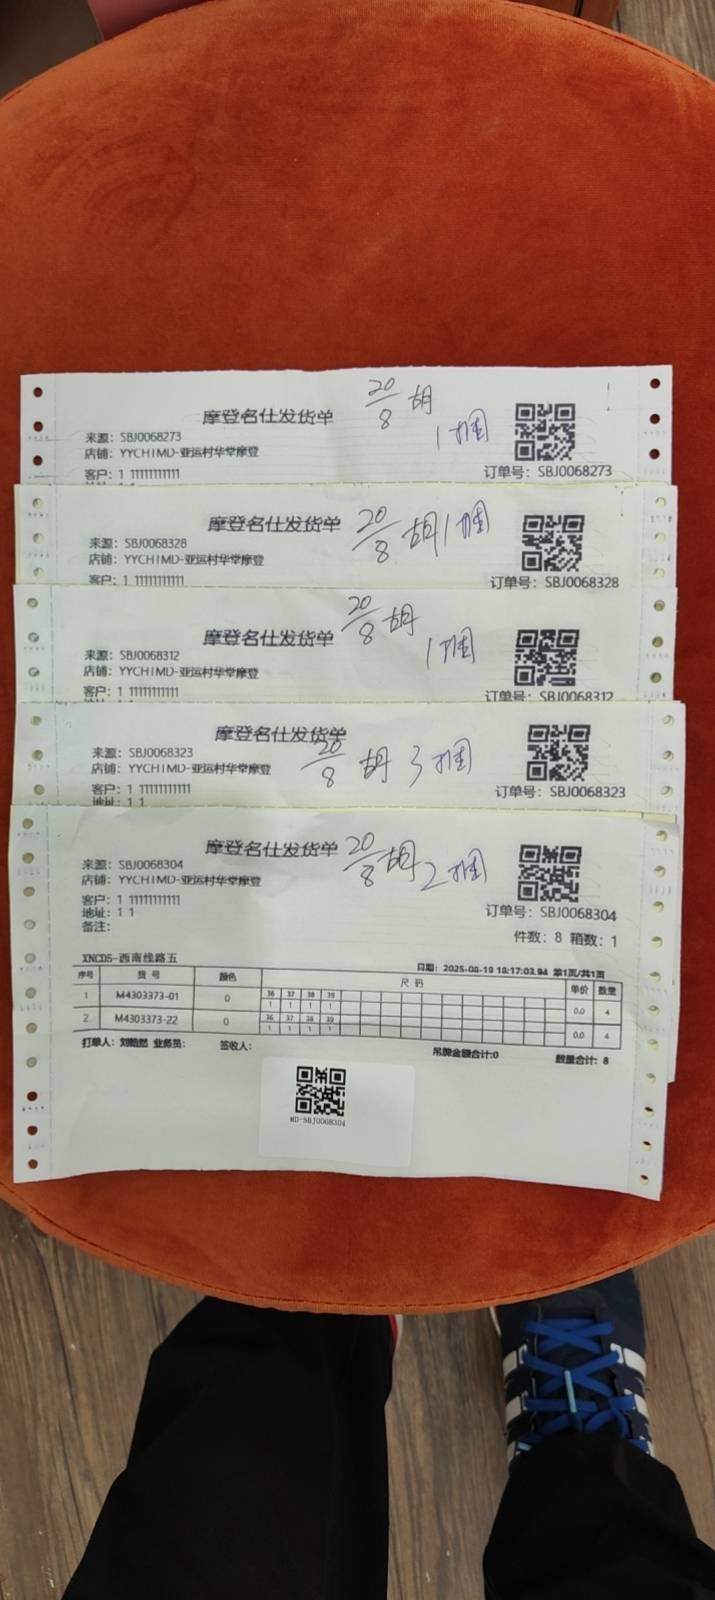 摩登名仕发货单
20/8 胡
1捆
来源: SBJ0068273
店铺: YYCHIMD-亚运村华堂摩登
客户: 1 11111111111
订单号: SBJ0068273
摩登名仕发货单
20/8 胡1捆
来源: SBJ0068328
店铺: YYCHIMD-亚运村华堂摩登
客户: 1 11111111111
订单号: SBJ0068328
摩登名仕发货单
20/8 胡
1捆
来源: SBJ0068312
店铺: YYCHIMD-亚运村华堂摩登
客户: 1 11111111111
订单号: SBJ0068312
摩登名仕发货单
20/8 胡 3捆
来源: SBJ0068323
店铺: YYCHIMD-亚运村华堂摩登
客户: 1 11111111111
地址: 1 1
订单号: SBJ0068323
摩登名仕发货单
20/8 胡 2捆
来源: SBJ0068304
店铺: YYCHIMD-亚运村华堂摩登
客户: 1 11111111111
地址: 1 1
备注:
订单号: SBJ0068304
件数: 8 箱数: 1
XNCD5-西南线路五
日期: 2025-08-19 18:17:03.94 第1页/共1页
序号 货号 颜色 尺码 单价 数量
36 37 38 39
1 M4303373-01 0 1 1 1 1 0.0 4
36 37 38 39
2 M4303373-22 0 1 1 1 1 0.0 4
打单人: 刘皓然 业务员: 签收人: 吊牌金额合计:0 数量合计: 8
MD-SBJ0068304